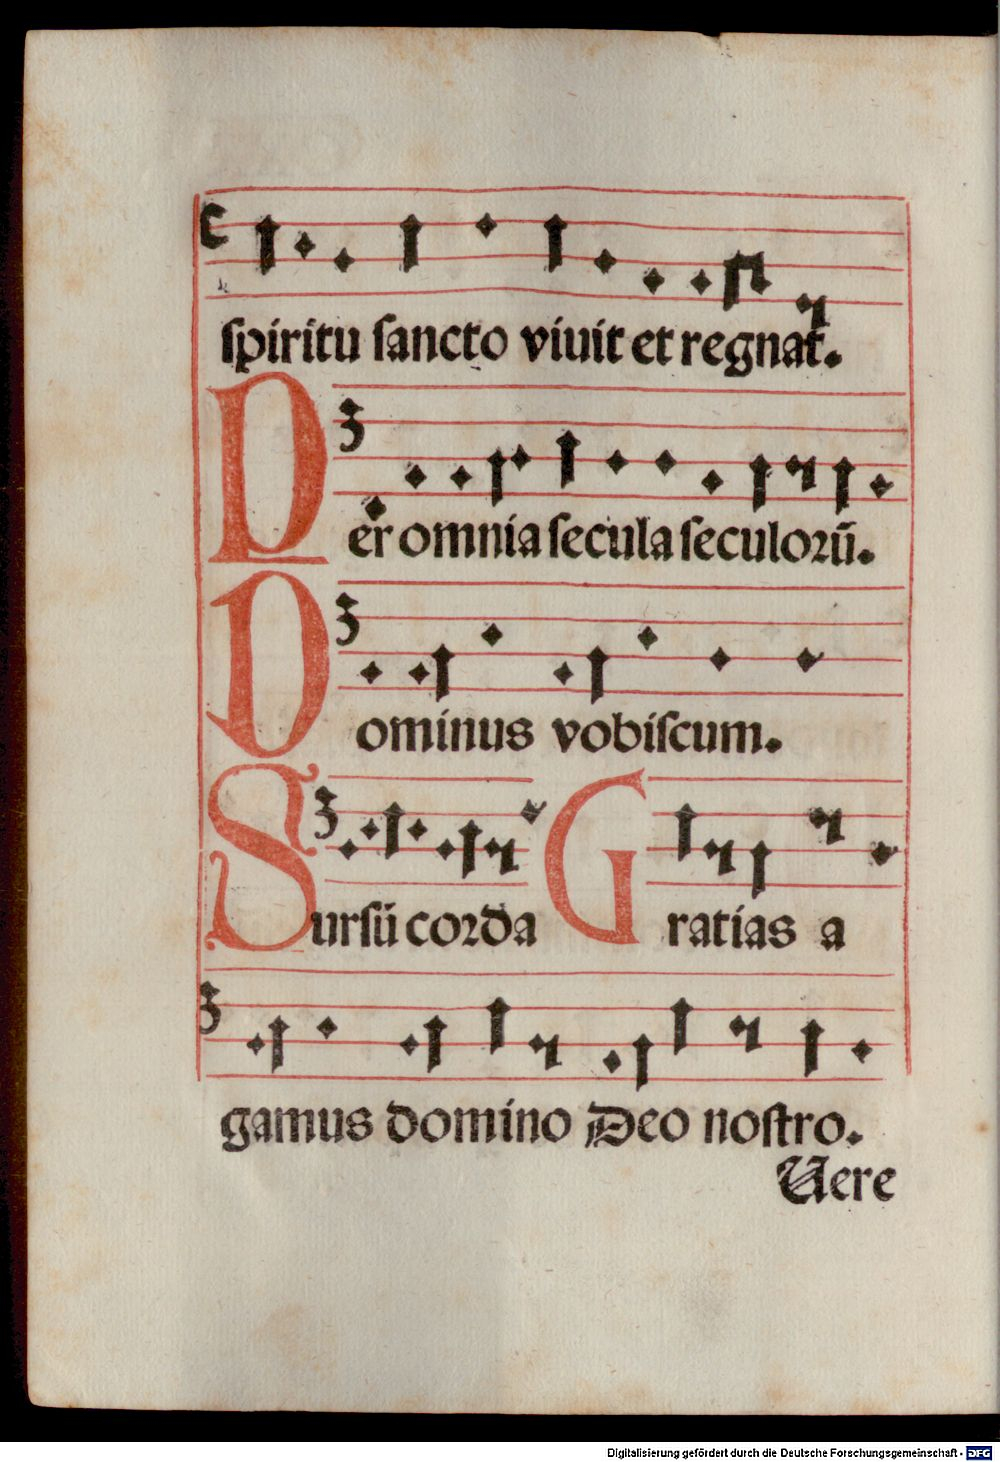 ſpiritu ſancto viuit et regnat.
Per omnia ſecula ſeculoꝛū.
Dominus vobiſcum.
Surſū coꝛda Gratias a
gamus domino Deo noſtro.
Uere
Digitalisierung gefördert durch die Deutsche Forschungsgemeinschaft - DFG